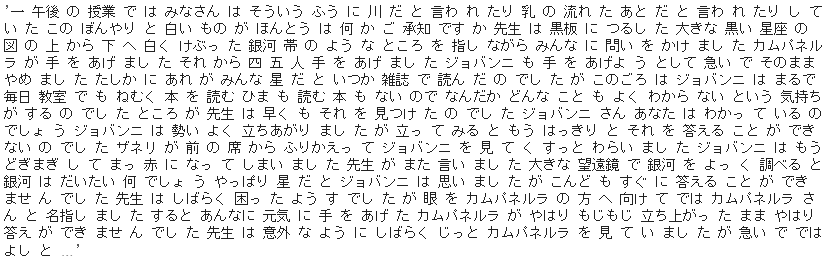 '一 午後 の 授業 で は みなさん は そういう ふう に 川 だ と 言わ れ たり 乳 の 流れ た あと だ と 言わ れ たり し て
い た この ぼんやり と 白い もの が ほんとう は 何 か ご 承知 です か 先生 は 黒板 に つるし た 大きな 黒い 星座 の
図 の 上 から 下 へ 白く けぶっ た 銀河 帯 の よう な ところ を 指し ながら みんな に 問い を かけ まし た カムパネル
ラ が 手 を あげ まし た それ から 四 五 人 手 を あげ まし た ジョバンニ も 手 を あげよ う として 急い で そのまま
やめ まし た たしか に あれ が みんな 星 だ と いつか 雑誌 で 読ん だ の でし た が このごろ は ジョバンニ は まるで
毎日 教室 で も ねむく 本 を 読む ひま も 読む 本 も ない ので なんだか どんな こと も よく わから ない という 気持ち
が する の でし た ところが 先生 は 早く も それ を 見つけ た の でし た ジョバンニ さん あなた は わかっ て いる の
でしょ う ジョバンニ は 勢い よく 立ちあがり まし た が 立っ て みる と もう はっきり と それ を 答える こと が でき
ない の でし た ザネリ が 前 の 席 から ふりかえっ て ジョバンニ を 見 て くすっ と わらい まし た ジョバンニ は もう
どぎまぎ し て まっ 赤 に なっ て しまい まし た 先生 が また 言い まし た 大きな 望遠鏡 で 銀河 を よっ く 調べる と
銀河 は だいたい 何 でしょ う やっぱり 星 だ と ジョバンニ は 思い まし た が こんど も すぐ に 答える こと が でき
ませ ん でし た 先生 は しばらく 困っ た よう す でし た が 眼 を カムパネルラ の 方 へ 向け て では カムパネルラ さ
ん と 名指し まし た すると あんなに 元気 に 手 を あげ た カムパネルラ が やはり もじもじ 立ち上がっ た まま やはり
答え が でき ませ ん でし た 先生 は 意外 な よう に しばらく じっと カムパネルラ を 見 て い まし た が 急い で では
よし と ...'